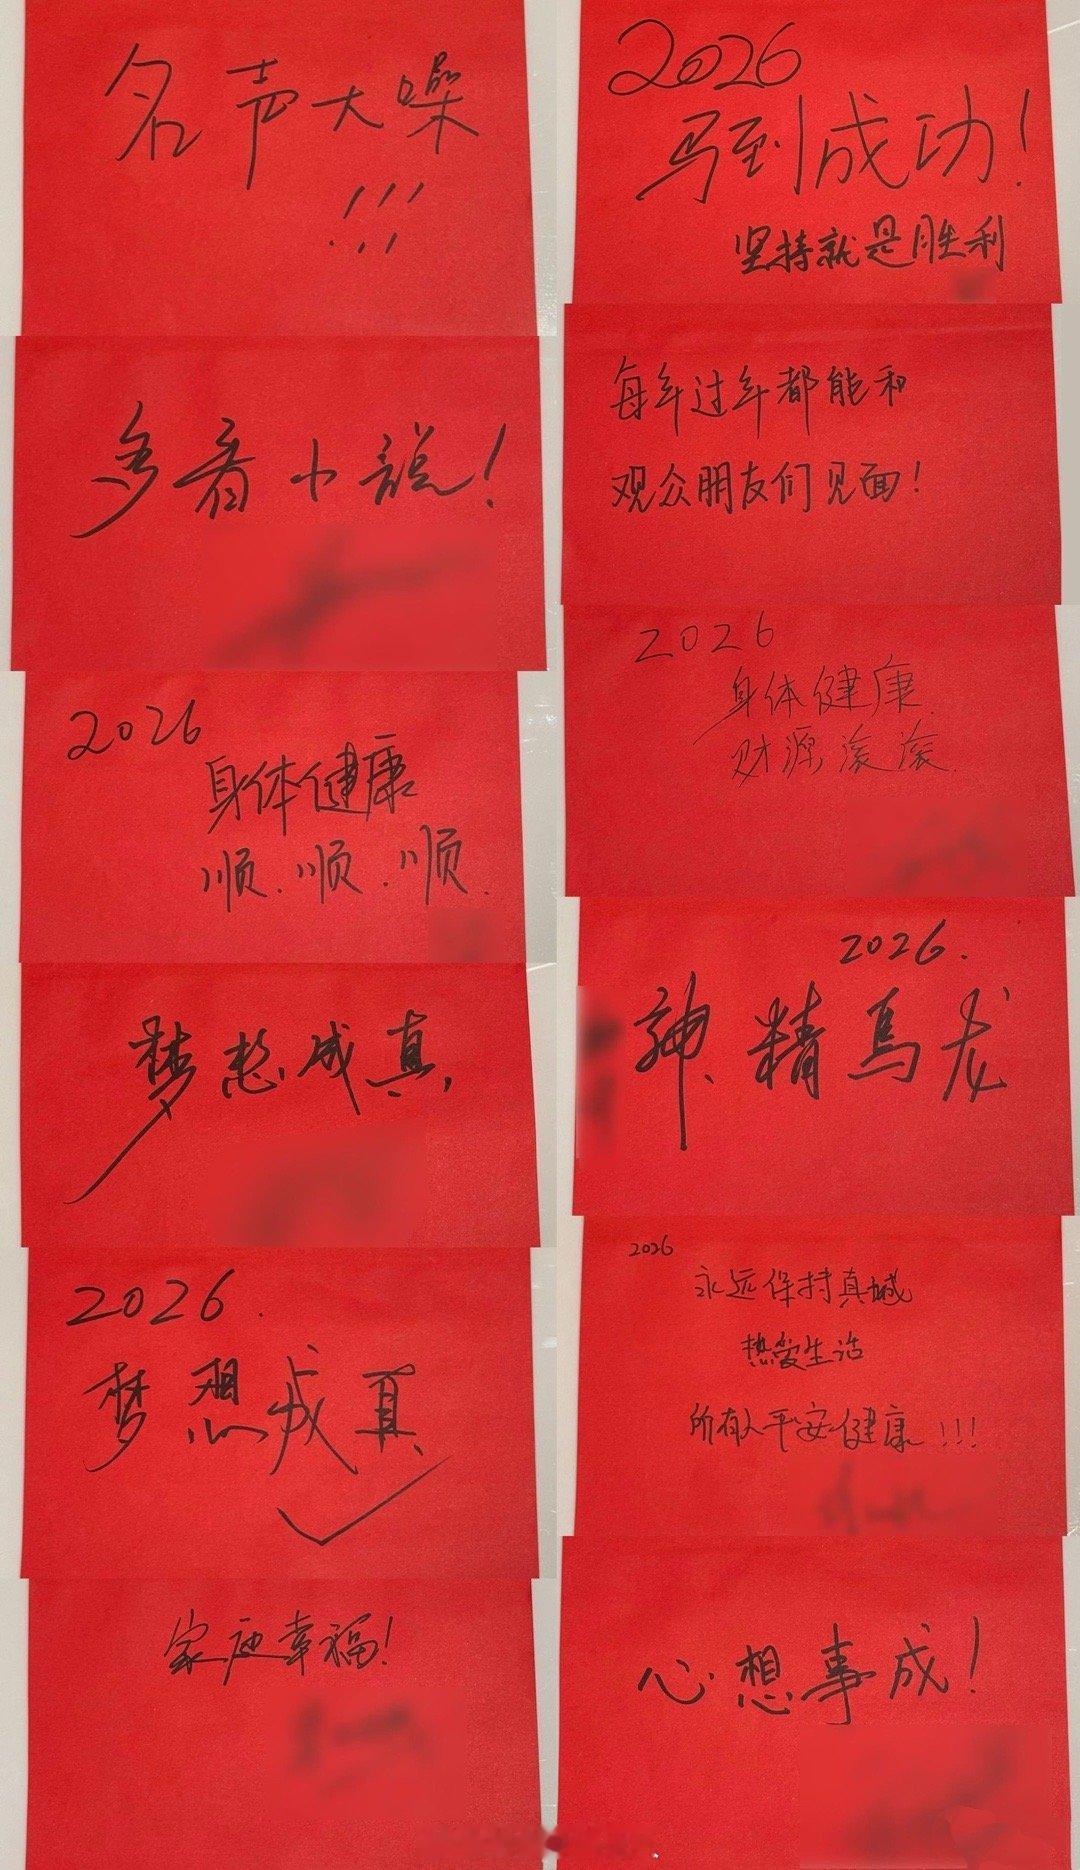 名声大噪
!!!
多看小说!
2026
身体健康
顺.顺.顺.
梦想成真,
2026.
梦想成真
家庭幸福!
2026
马到成功!
坚持就是胜利
每年过年都能和
观众朋友们见面!
2026
身体健康
财源滚滚
2026.
神精马龙
2026
永远保持真诚
热爱生活
所有人平安健康!!!
心想事成!